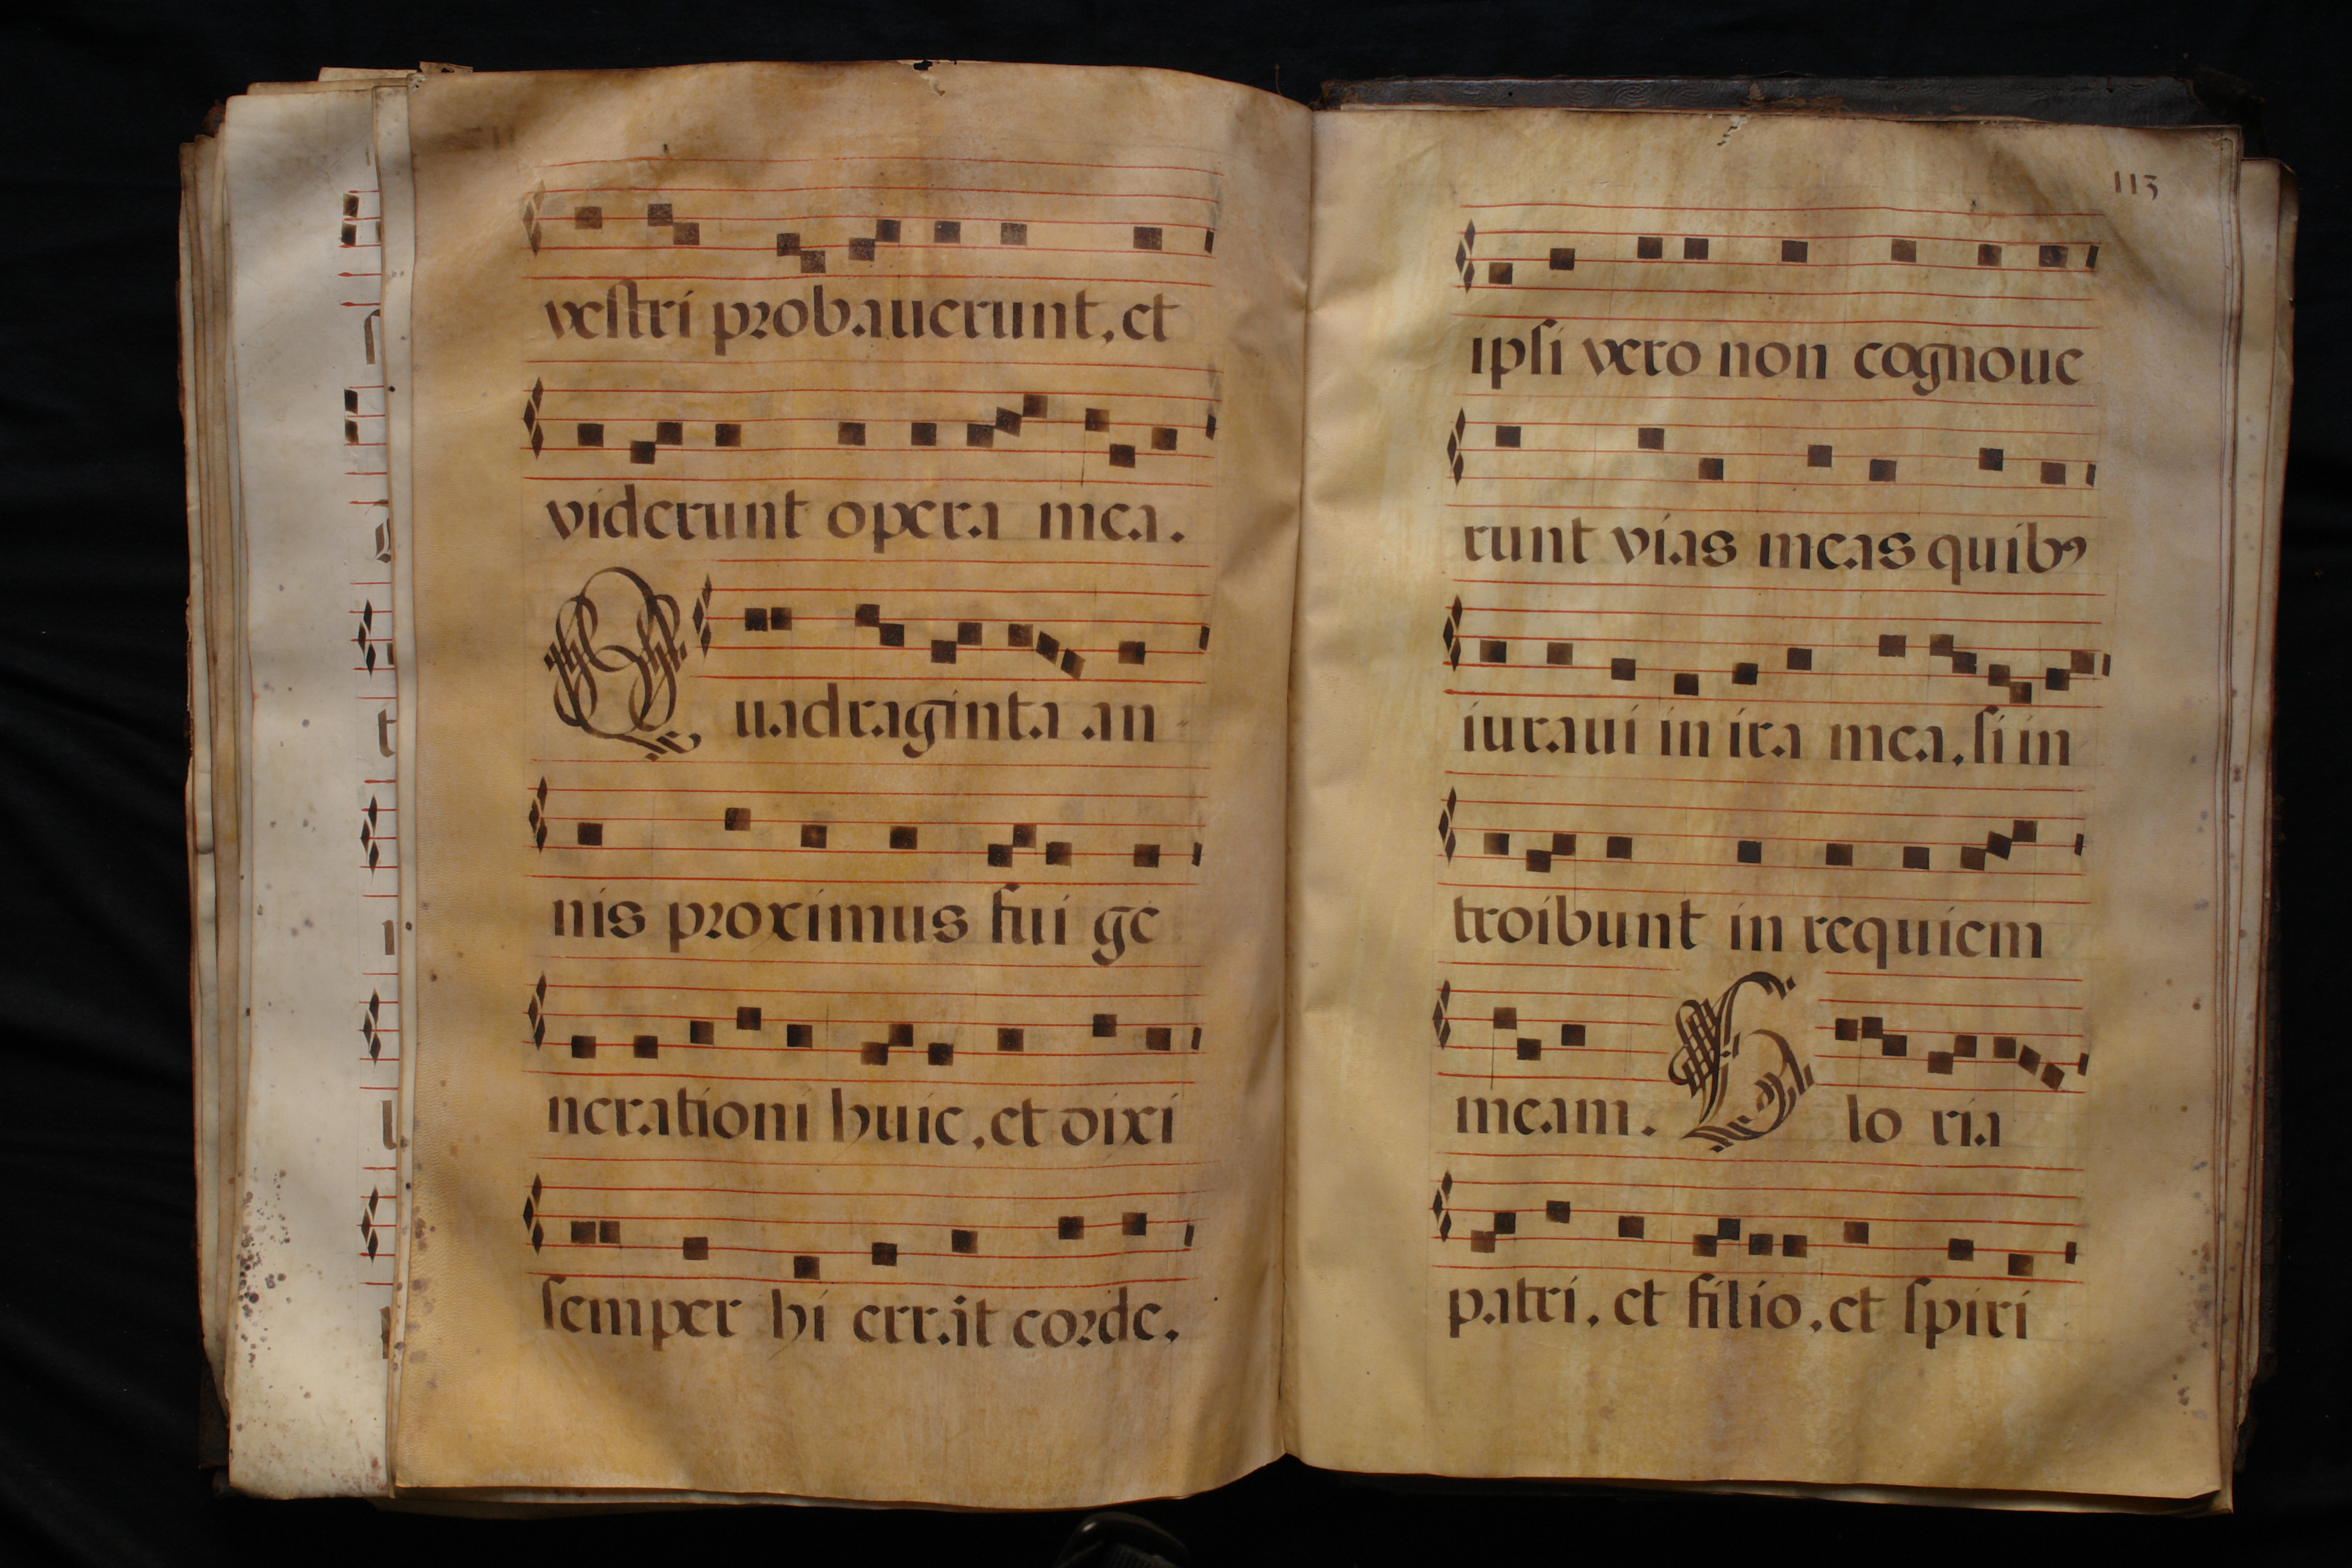 veſtri probauerunt, et
viderunt opera mea.
Quadraginta an-
nis proximus fui ge
nerationi huic, et dixi
ſemper hi errait corde.
113
ipſi vero non cognoue
runt vias meas quibꝰ
iuraui in ira mea, ſi in
troibunt in requiem
meam. Glo ria
patri, et filio, et ſpiri